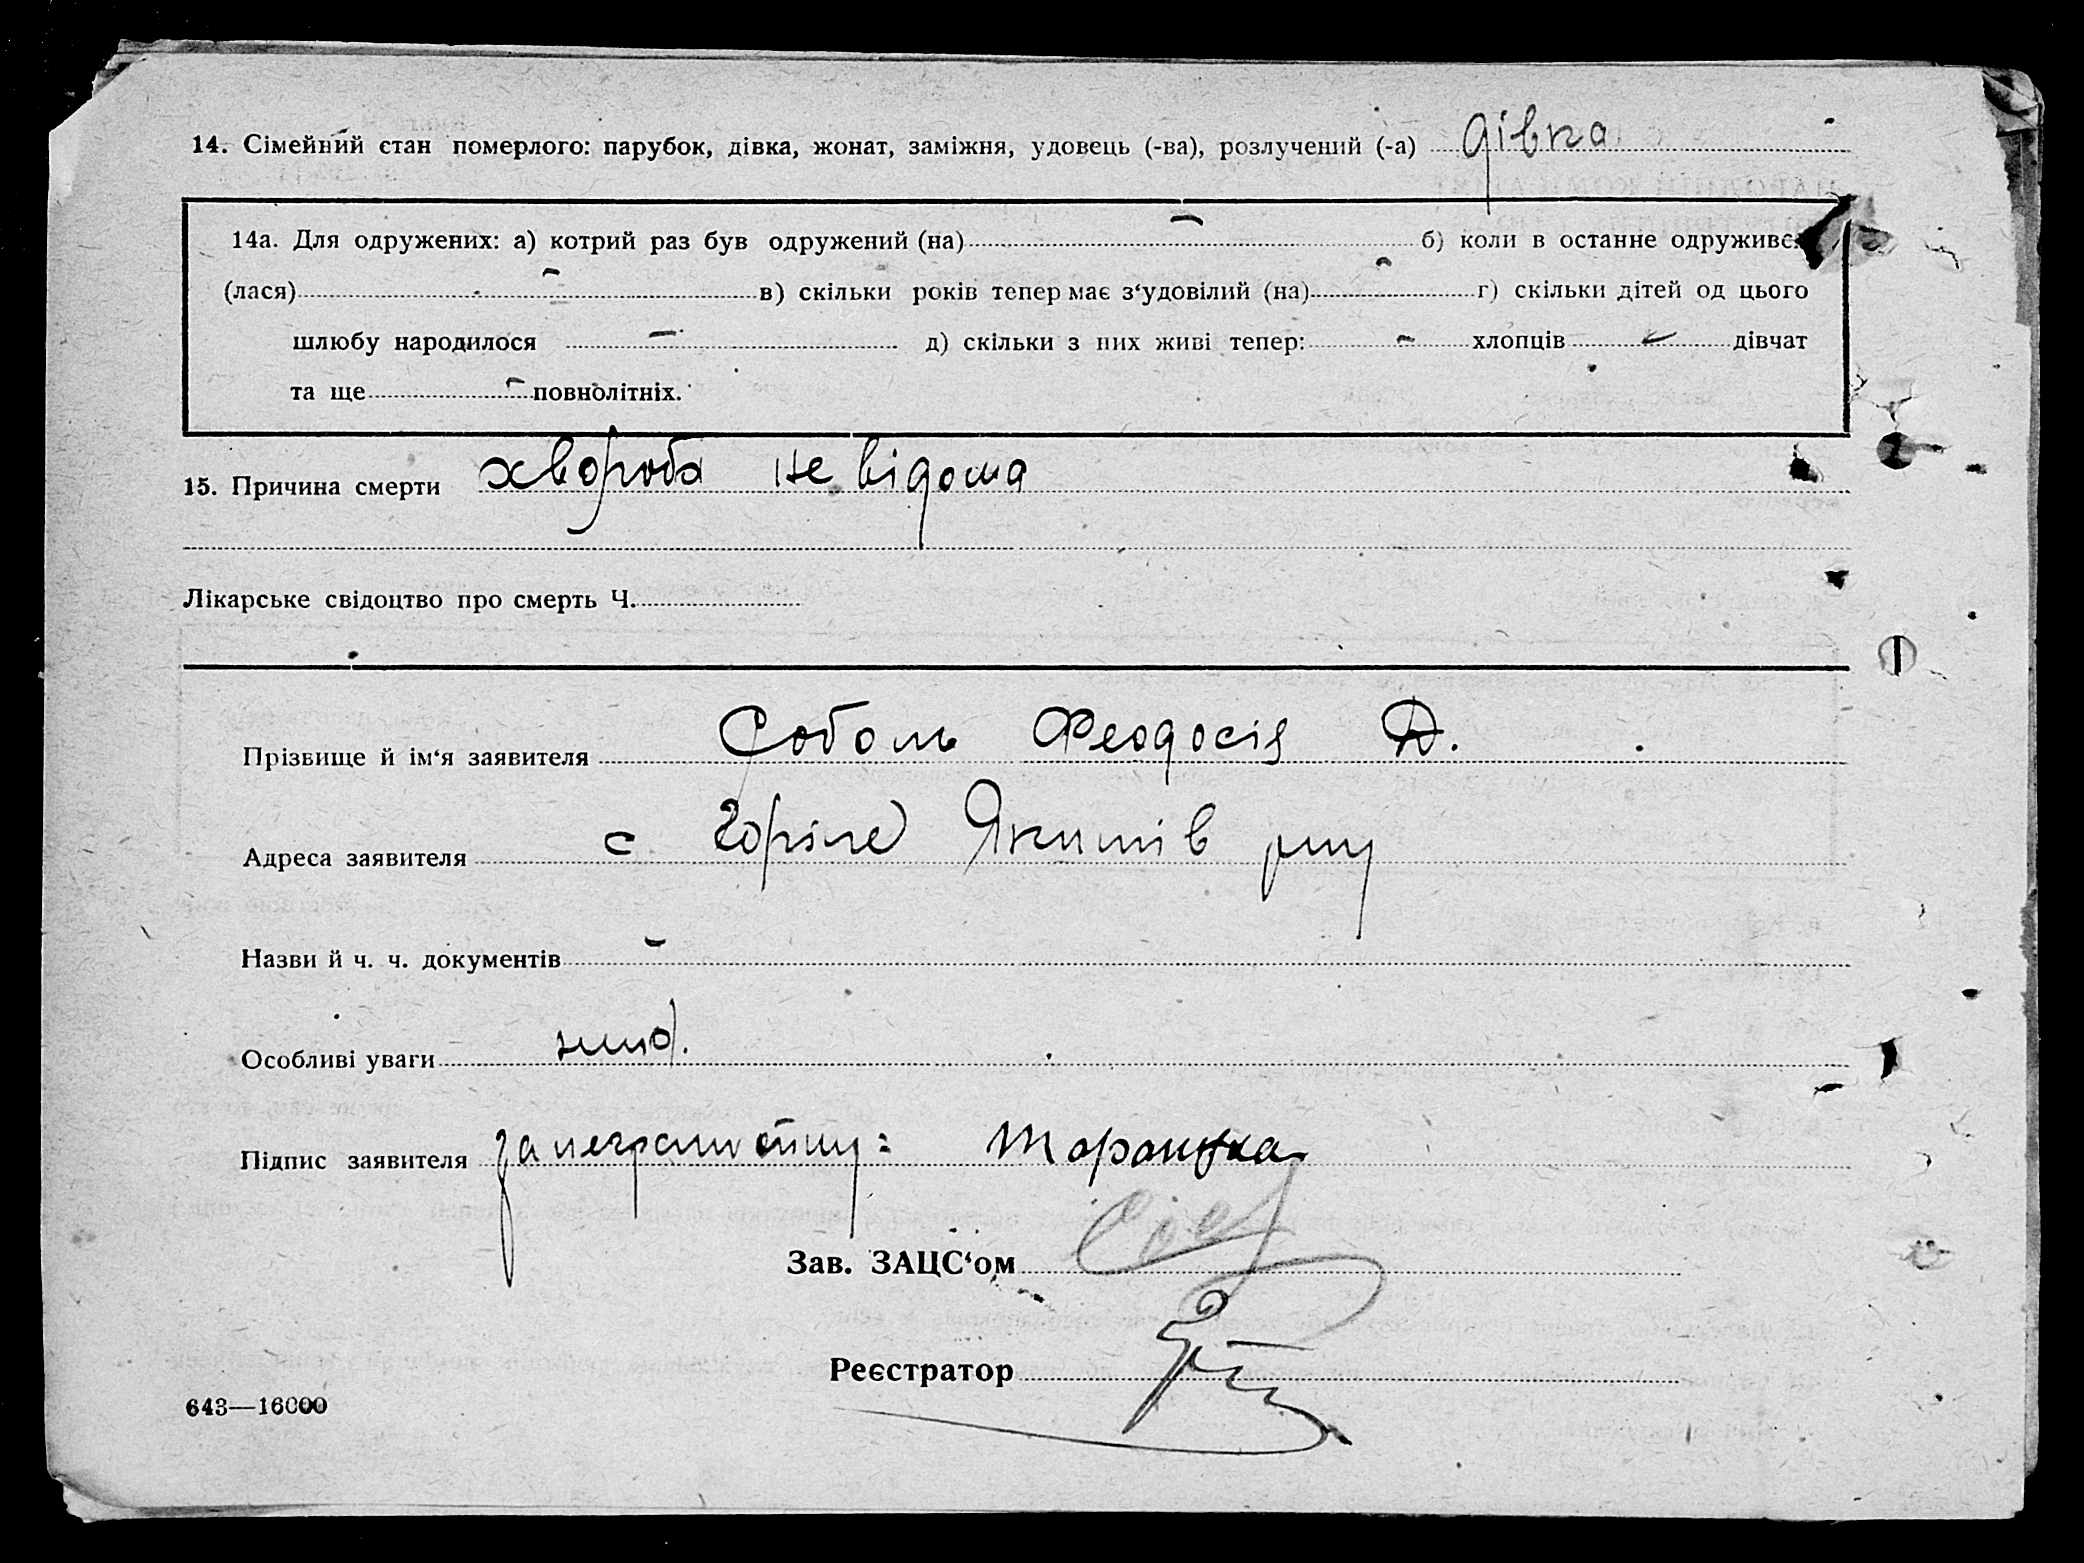 14. Сімейний стан померлого: парубок, дівка, жонат, заміжня, удовець (-ва), розлучений (-а) дівка
14а. Для одружених: а) котрий раз був одружений (на) – б) коли в останнє одружився
(лася) – в) скільки років тепер має з‘удовілий (на) – г) скільки дітей од цього
шлюбу народилося – д) скільки з них живі тепер: – хлопців – дівчат
та ще – повнолітніх.
15. Причина смерти хвороба не відома
Лікарське свідоцтво про смерть Ч.
Прізвище й ім‘я заявителя Соболь Феодосія Д.
Адреса заявителя с Горіле Якимів рну
Назви й ч. ч. документів –
Особливі уваги
Підпис заявителя за неграмотну:
Зав. ЗАЦС‘ом
Реєстратор
643—16000